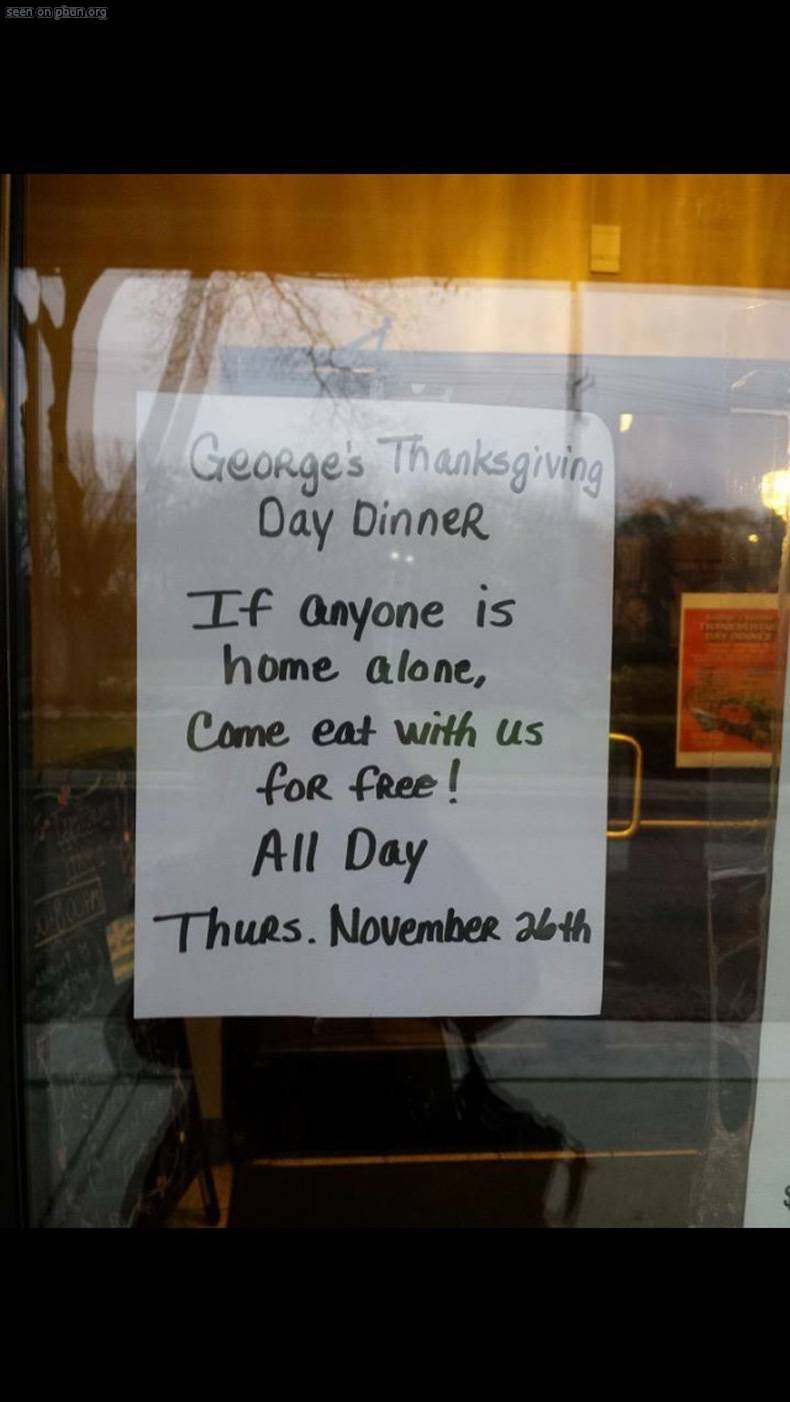 seen on phun.org
GEORge's Thanksgiving
Day DinneR
If anyone is
home alone,
Come eat with us
foR fRee!
All Day
ThuRs. NovembeR 26th
THANKSGIVING
DAY DINNER
$